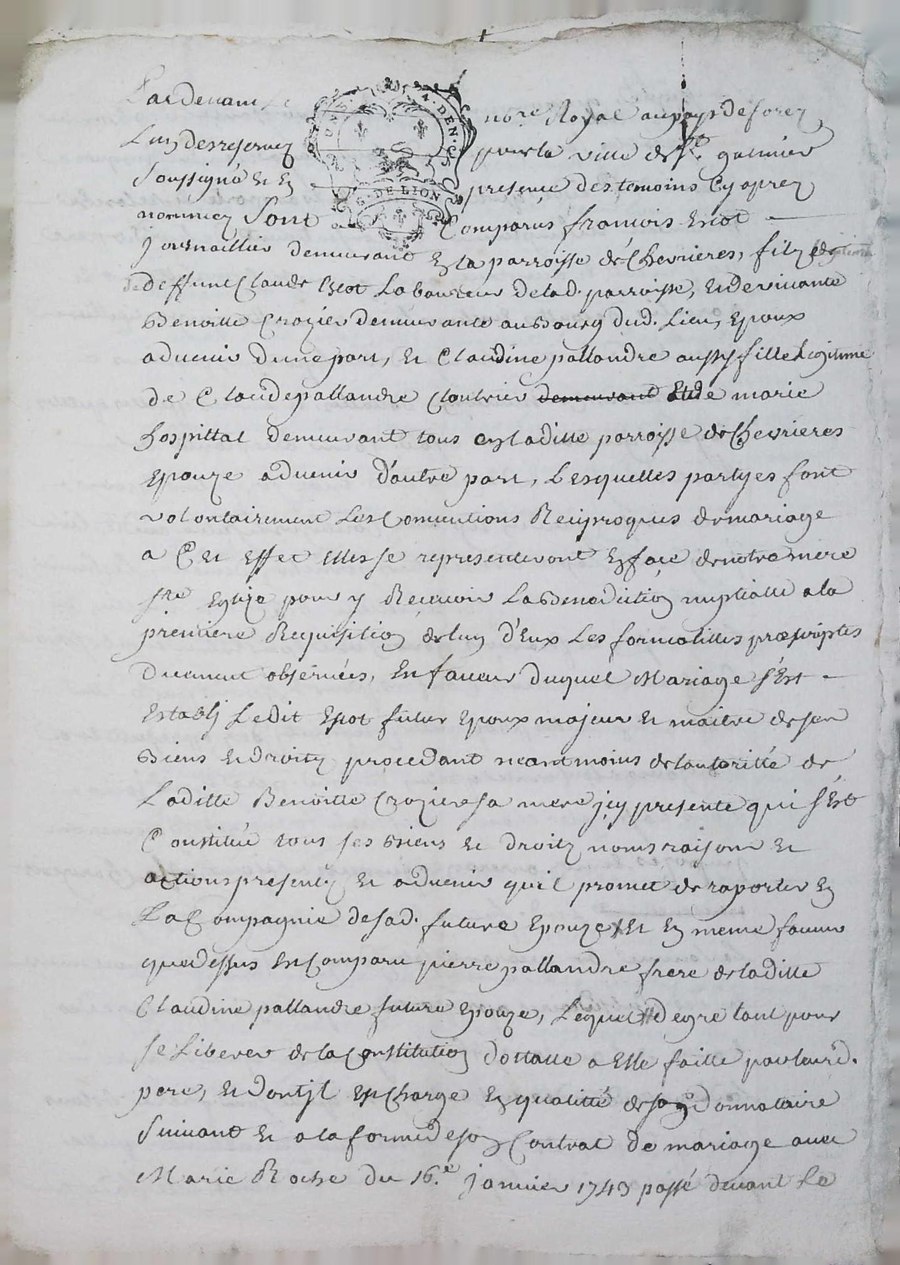 Pardevant Le no.re Royal au pays de forez
L'un des reservez pour la ville de S.t galmier
Soussigné et en presence des temoins cy aprez
nommez Sont Comparus francois Escot
journaillier demeurant en la parroisse de Chevrieres, filz
de deffunt Claude Escot Laboureur de lad. parroisse, et de vivante
Benoitte Crozier demeurante au Bourg dud. Lieu, Epoux
advenir d'une part, et Claudine pallandre aussy fille Legitime
de Claude pallandre Cloutrier demeurant et de marie
hospittal demeurant tous en laditte parroisse de Chevrieres
Epouze advenir d'autre part, Lesquelles partyes font
volontairement Les Conventions Reciproques de mariage
a Cet effet Elles se representeront en face de notre mere
s.te Eglize pour y Recevoir La Benediction nuptialle a la
premiere Requisition de l'un d'Eux Les formalittes prescriptes
duement observées, En faveur duquel Mariage s'Est
Establi Ledit Escot futur Epoux majeur et maitre de ses
Biens et droitz procedant neantmoins de l'autorité de
Laditte Benoitte Crozier sa mere jcy presente qui s'Est
Constitué tous ses Biens et droitz noms raisons et
actions presentz et advenir qu'il promet de raporter en
La Compagnie de sad. future Epouze, Et En meme faveur
que dessus Est Comparu pierre pallandre frere de laditte
Claudine pallandre future Epouze, Lequel de gre tant pour
se Liberer de la Constitution dottalle a Elle faitte par leurd.
pere, et dont jl Est Chargé En qualitté de son donnataire
Suivant et a la forme de son Contrat de mariage avec
Marie Roche du 16.e janvier 1743 passé devant Le
G. DE LION